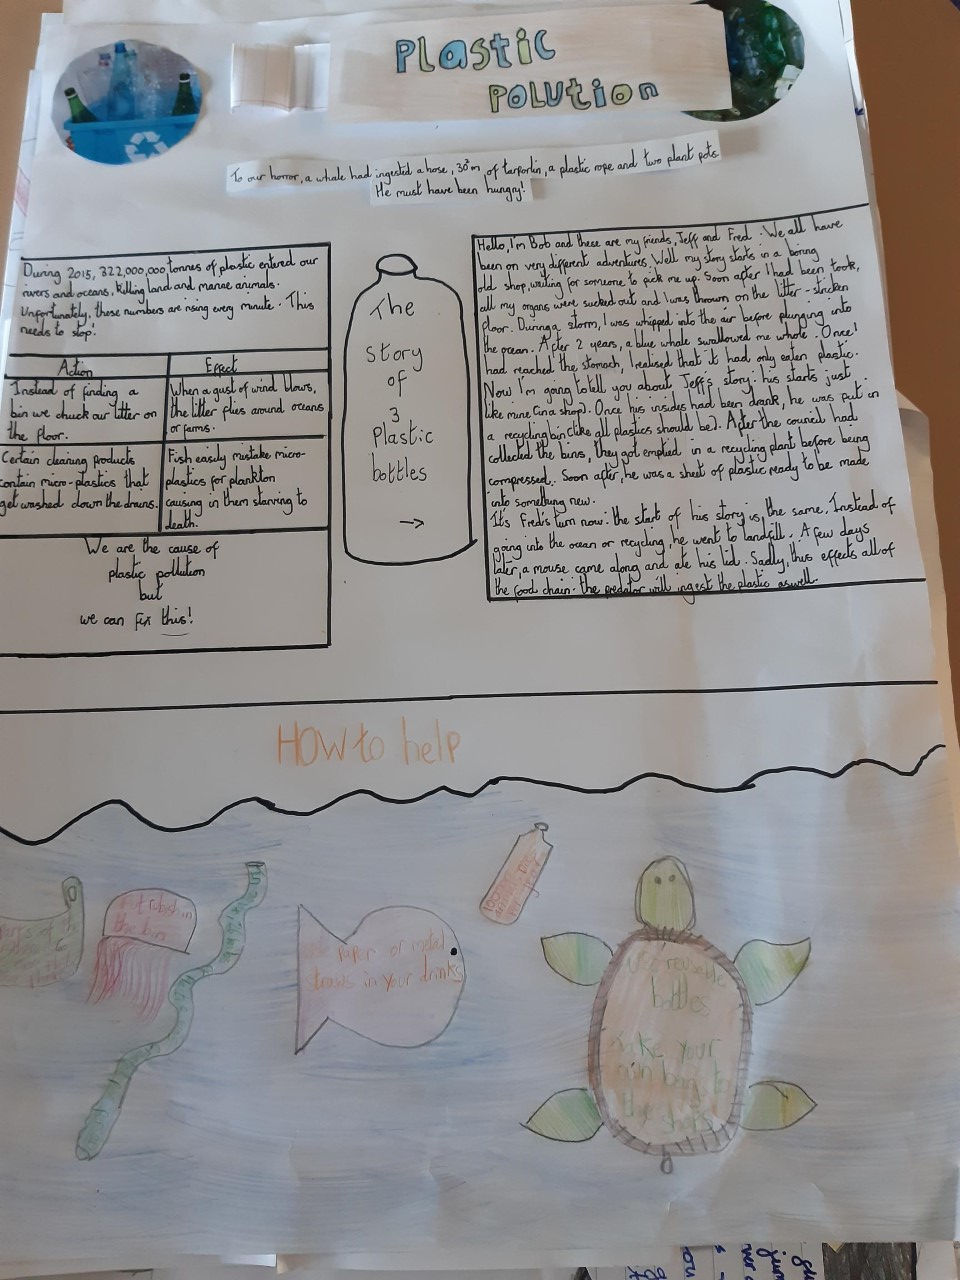 Plastic
POLUtion
To our horror, a whale had ingested a hose, 30²m, of tarporlin, a plastic rope and two plant pots.
He must have been hungry!
During 2015, 322,000,000 tonnes of plastic entered our
rivers and oceans, killing land and marine animals.
Unfortunately, these numbers are rising every minute. This
needs to stop!
Action
Effect
Instead of finding a
bin we chuck our litter on
the floor.
When a gust of wind blows,
the litter flies around oceans
or farms.
Certain cleaning products
contain micro-plastics that
get washed down the drains.
Fish easily mistake micro-
plastics for plankton
causing in them starving to
death.
We are the cause of
plastic pollution
but
we can fix this!
The
story
of
3
Plastic
bottles
→
Hello, I'm Bob and these are my friends, Jeff and Fred. We all have
been on very different adventures. Well my story starts in a boring
old shop, waiting for someone to pick me up. Soon after I had been took,
all my organs were sucked out and I was thrown on the litter-stricken
floor. During a storm, I was whipped into the air before plunging into
the ocean. After 2 years, a blue whale swallowed me whole. Once I
had reached the stomach, I realised that it had only eaten plastic.
Now I'm going to tell you about Jeff's story: his starts just
like mine (in a shop). Once his insides had been drank, he was put in
a recycling bin (like all plastics should be). After the council had
collected the bins, they got emptied in a recycling plant before being
compressed. Soon after, he was a sheet of plastic ready to be made
into something new.
It's Fred's turn now: the start of his story is the same. Instead of
going into the ocean or recycling, he went to landfill. A few days
later, a mouse came along and ate his lid. Sadly, this effects all of
the food chain: the predator will ingest the plastic aswell.
HOW to help
Put rubish in
the bin
Paper or metal
straws in your drinks
Use reusable
bottles
make your
own bags to
the shops